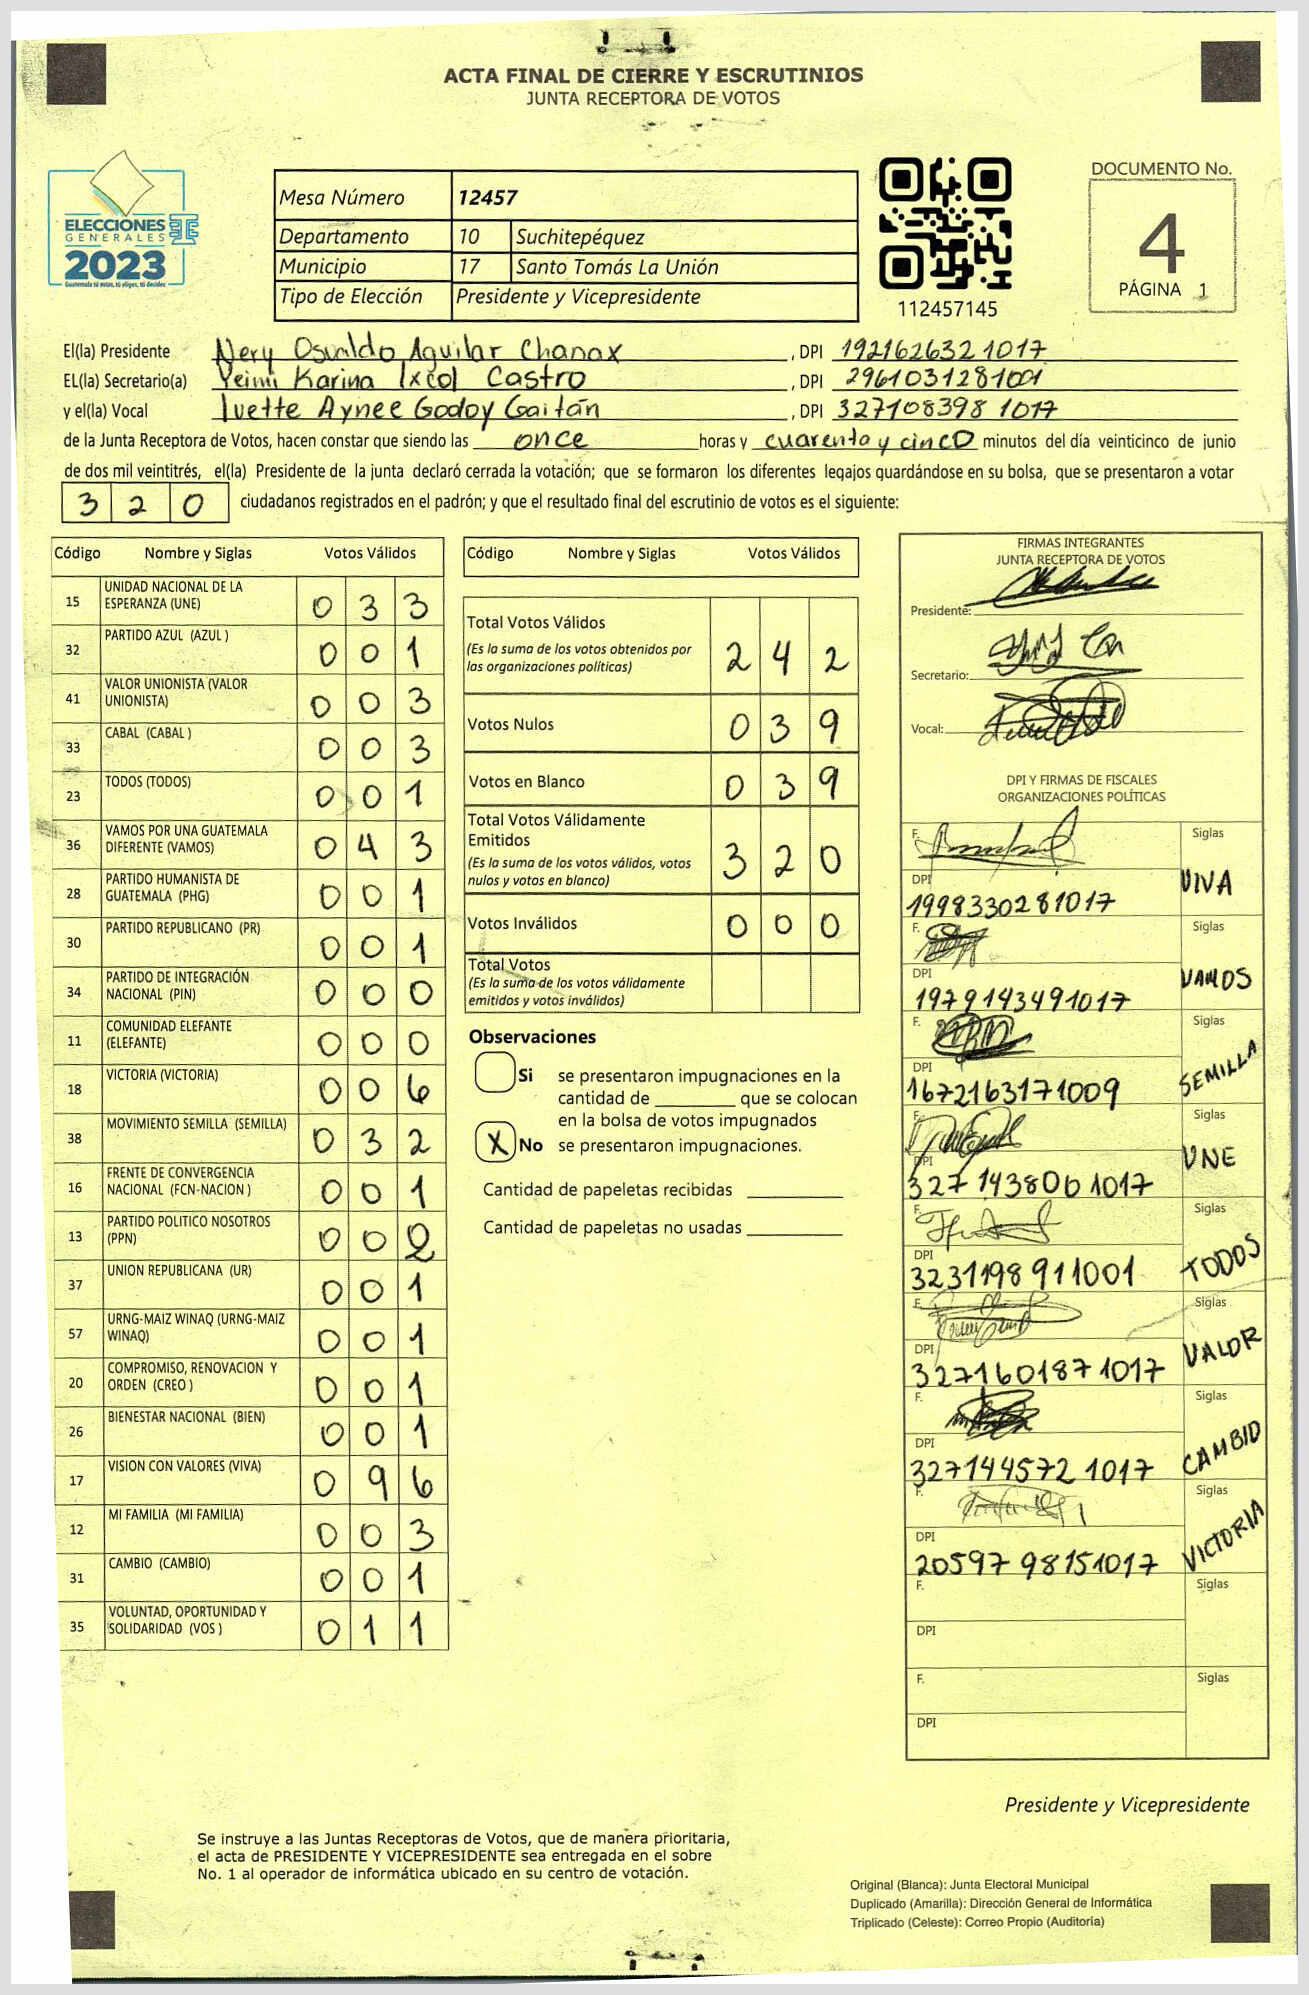 ACTA FINAL DE CIERRE Y ESCRUTINIOS
JUNTA RECEPTORA DE VOTOS
ELECCIONES
GENERALES
2023
Guatemala tú votas, tú eliges, tú decides
Mesa Número 12457
Departamento 10 Suchitepéquez
Municipio 17 Santo Tomás La Unión
Tipo de Elección Presidente y Vicepresidente
112457145
DOCUMENTO No.
4
PÁGINA 1
El(la) Presidente Nery Osvaldo Aguilar Chanax , DPI 192162632 1017
EL(la) Secretario(a) Yeimi Karina Ixcol Castro , DPI 2961031281001
y el(la) Vocal Ivette Aynee Godoy Gaitán , DPI 327108398 1017
de la Junta Receptora de Votos, hacen constar que siendo las once horas y cuarenta y cinco minutos del día veinticinco de junio
de dos mil veintitrés, el(la) Presidente de la junta declaró cerrada la votación; que se formaron los diferentes legajos guardándose en su bolsa, que se presentaron a votar
3 2 0 ciudadanos registrados en el padrón; y que el resultado final del escrutinio de votos es el siguiente:
Código Nombre y Siglas Votos Válidos
15 UNIDAD NACIONAL DE LA ESPERANZA (UNE) 0 3 3
32 PARTIDO AZUL (AZUL ) 0 0 1
41 VALOR UNIONISTA (VALOR UNIONISTA) 0 0 3
33 CABAL (CABAL ) 0 0 3
23 TODOS (TODOS) 0 0 1
36 VAMOS POR UNA GUATEMALA DIFERENTE (VAMOS) 0 4 3
28 PARTIDO HUMANISTA DE GUATEMALA (PHG) 0 0 1
30 PARTIDO REPUBLICANO (PR) 0 0 1
34 PARTIDO DE INTEGRACIÓN NACIONAL (PIN) 0 0 0
11 COMUNIDAD ELEFANTE (ELEFANTE) 0 0 0
18 VICTORIA (VICTORIA) 0 0 6
38 MOVIMIENTO SEMILLA (SEMILLA) 0 3 2
16 FRENTE DE CONVERGENCIA NACIONAL (FCN-NACION ) 0 0 1
13 PARTIDO POLITICO NOSOTROS (PPN) 0 0 2
37 UNION REPUBLICANA (UR) 0 0 1
57 URNG-MAIZ WINAQ (URNG-MAIZ WINAQ) 0 0 1
20 COMPROMISO, RENOVACION Y ORDEN (CREO ) 0 0 1
26 BIENESTAR NACIONAL (BIEN) 0 0 1
17 VISION CON VALORES (VIVA) 0 9 6
12 MI FAMILIA (MI FAMILIA) 0 0 3
31 CAMBIO (CAMBIO) 0 0 1
35 VOLUNTAD, OPORTUNIDAD Y SOLIDARIDAD (VOS ) 0 1 1
Código Nombre y Siglas Votos Válidos
Total Votos Válidos
(Es la suma de los votos obtenidos por
las organizaciones políticas) 2 4 2
Votos Nulos 0 3 9
Votos en Blanco 0 3 9
Total Votos Válidamente
Emitidos
(Es la suma de los votos válidos, votos
nulos y votos en blanco) 3 2 0
Votos Inválidos 0 0 0
Total Votos
(Es la suma de los votos válidamente
emitidos y votos inválidos)
Observaciones
Si se presentaron impugnaciones en la
cantidad de ________ que se colocan
en la bolsa de votos impugnados
X No se presentaron impugnaciones.
Cantidad de papeletas recibidas
Cantidad de papeletas no usadas
FIRMAS INTEGRANTES
JUNTA RECEPTORA DE VOTOS
Presidente:
Secretario:
Vocal:
DPI Y FIRMAS DE FISCALES
ORGANIZACIONES POLÍTICAS
F. Siglas
DPI VIVA
1998330281017
F. Siglas
DPI VAMOS
1979143491017
F. Siglas
DPI SEMILLA
1672163171009
F. Siglas
DPI UNE
327 143806 1017
F. Siglas
DPI TODOS
3231198 911001
F. Siglas
DPI VALOR
3271601871017
F. Siglas
DPI CAMBIO
327144572 1017
F. Siglas
DPI VICTORIA
20597 98151017
F. Siglas
DPI
F. Siglas
DPI
Presidente y Vicepresidente
Se instruye a las Juntas Receptoras de Votos, que de manera prioritaria,
el acta de PRESIDENTE Y VICEPRESIDENTE sea entregada en el sobre
No. 1 al operador de informática ubicado en su centro de votación.
Original (Blanca): Junta Electoral Municipal
Duplicado (Amarilla): Dirección General de Informática
Triplicado (Celeste): Correo Propio (Auditoría)